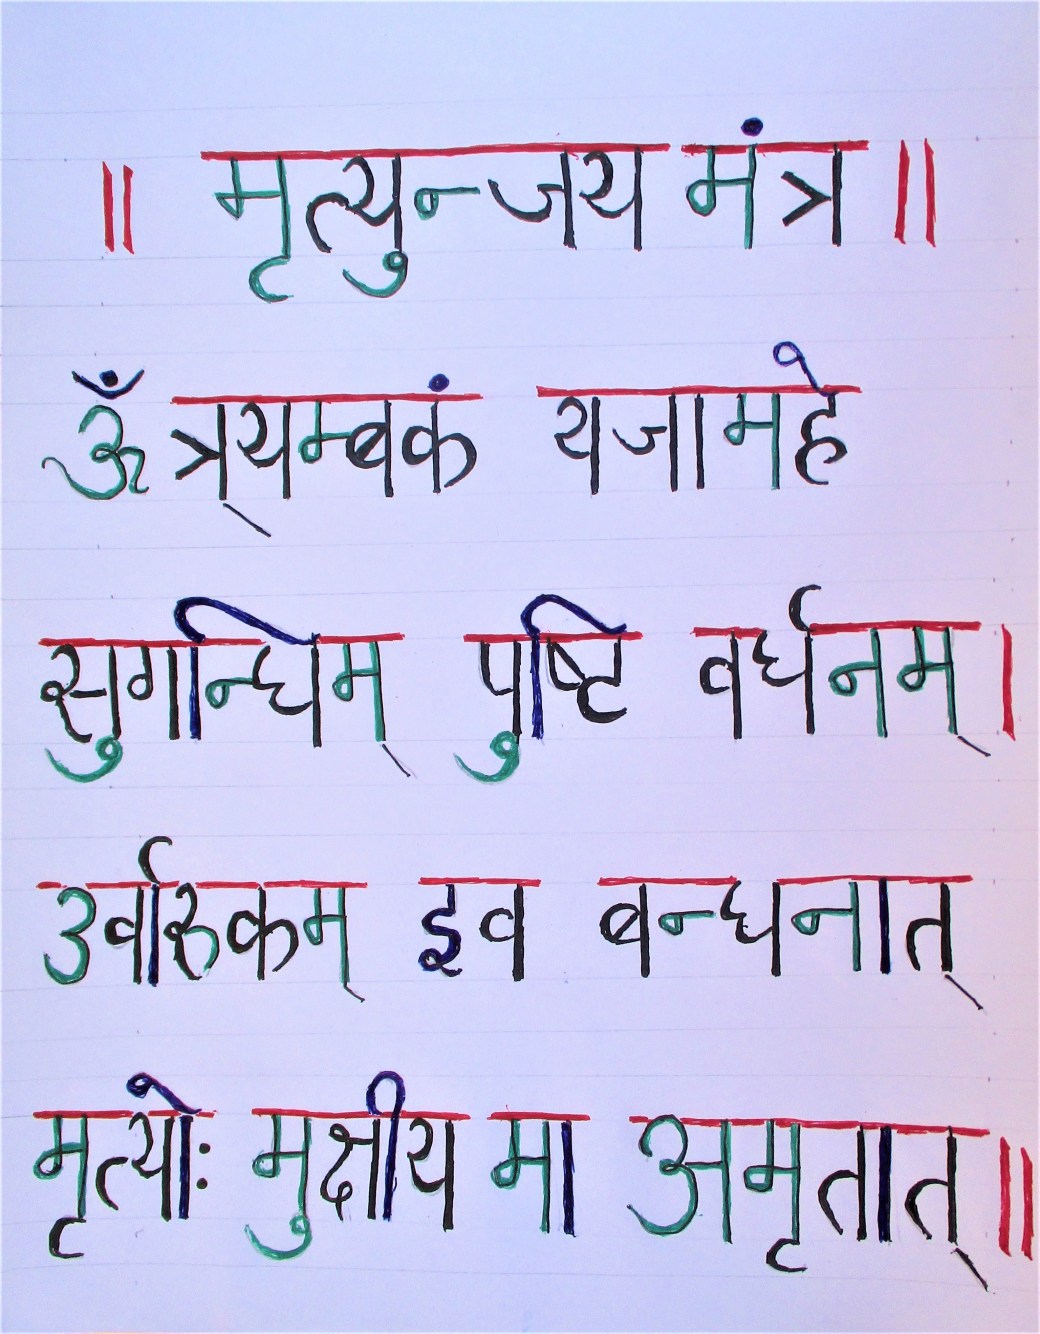 ॥ मृत्युन्जय मंत्र ॥
ॐ त्र्यम्बकं यजामहे
सुगन्धिम् पुष्टि वर्धनम् ।
उर्वारुकम् इव बन्धनात्
मृत्योः मुक्षीय मा अमृतात् ॥